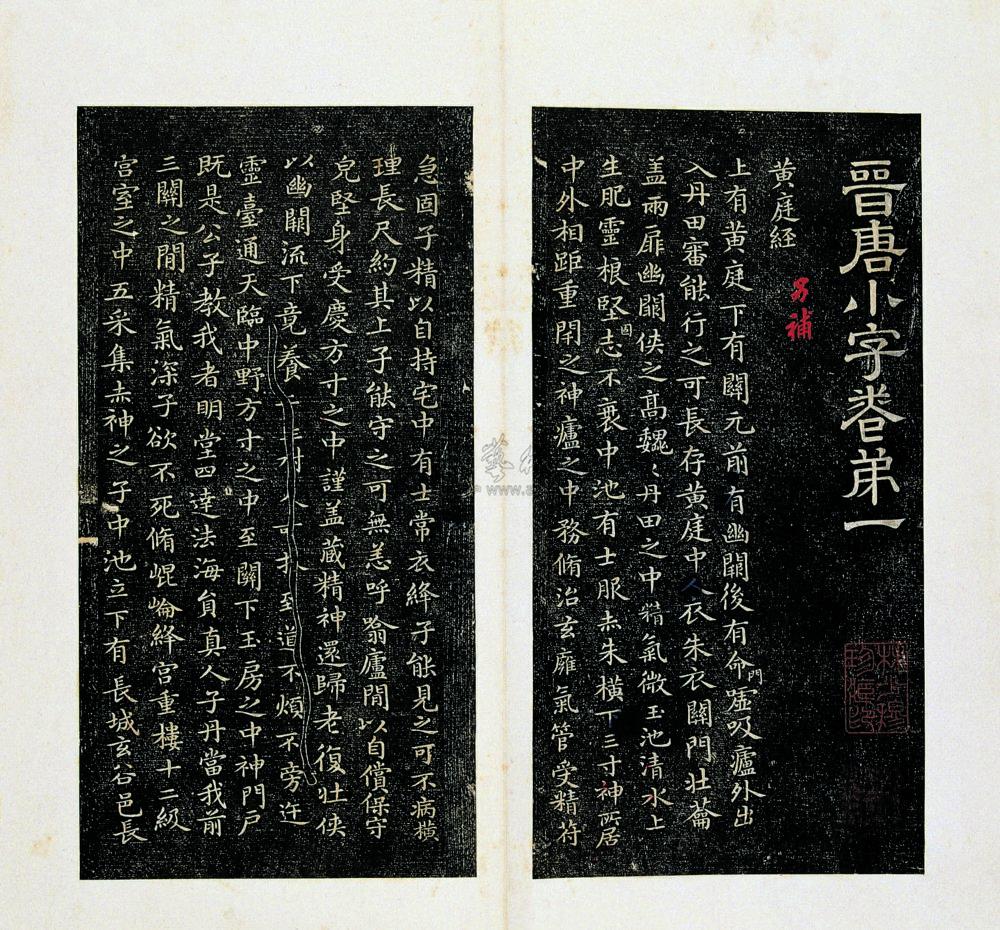 晉唐小字卷弟一
黃庭経
另補
上有黃庭下有關元前有幽闕後有命門噓吸廬外出
入丹田審能行之可長存黃庭中人衣朱衣關門壯蘥
盖兩扉幽闕俠之高魏〻丹田之中精氣微玉池清水上
生肥靈根堅固志不衰中池有士服赤朱橫下三寸神所居
中外相距重閇之神廬之中務脩治玄癰氣管受精符
急固子精以自持宅中有士常衣絳子能見之可不病橫
理長尺約其上子能守之可無恙呼翕廬閒以自償保守
完堅身受慶方寸之中謹盖藏精神還歸老復壯俠
以幽闕流下竟養至道不煩不旁迕
靈臺通天臨中野方寸之中至關下玉房之中神門戶
既是公子教我者明堂四達法海負真人子丹當我前
三關之閒精氣深子欲不死脩崐崘絳宮重樓十二級
宮室之中五采集赤神之子中池立下有長城玄谷邑長